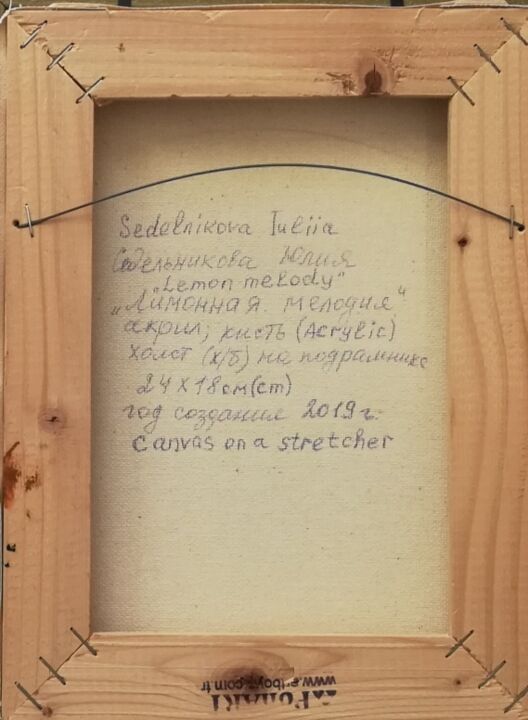 Sedelnikova Iuliia
Седельникова Юлия
"Lemon melody"
„Лимонная мелодия“
акрил, кисть (Acrylic)
холст (х/б) на подрамнике
24 х 18 см (cm)
год создания 2019 г.
canvas on a stretcher
PONART